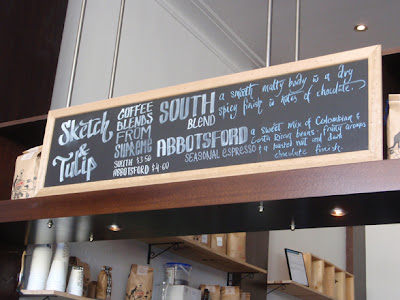 Sketch
&
Tulip
COFFEE
BLENDS
FROM
SUPREME
SOUTH $3.50
ABBOTSFORD $4.00
SOUTH
BLEND
a smooth malty body is a dry
spicy finish is notes of chocolate.
ABBOTSFORD
SEASONAL ESPRESSO
a sweet mix of Colombian &
Costa Rican beans. fruity aromas
roasted nut and dark
chocolate finish.